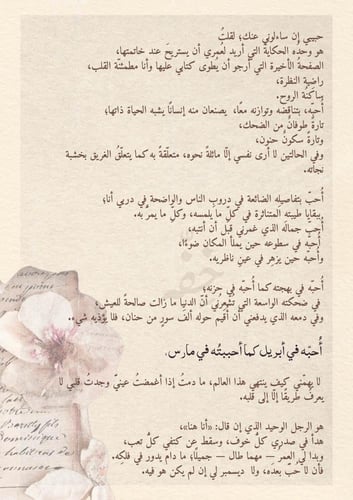 حبيبي إن ساءلوني عنك؛ لقلتُ
هو وحدُه الحكاية التي أريد لعُمري أن يستريحَ عند خاتمتها،
الصفحة الأخيرة التي أرجو أن يُطوى كتابي عليها وأنا مطمئنّة القلب،
راضية النظرة،
ساكنة الروح.
أُحبّه، بتناقضه وتوازنه معًا، يصنعان منه إنسانًا يشبه الحياة ذاتها؛
تارةً طوفانٌ من الضحك،
وتارةً سكونٌ حنون،
وفي الحالتين لا أرى نفسي إلّا ماثلةً نحوه، متعلّقةً به كما يتعلّقُ الغريق بخشبة
نجاته.
أُحبّ بتفاصيله الضائعة في دروبِ الناس والواضحة في دربي أنا؛
ببقايا طيبته المتناثرة في كلّ ما يلمسه، وكلّ ما يمرّ به.
أُحبّ جماله الذي غمرني قبل أن أنتبه،
وأُحبّه في سطوعه حين يملأ المكان ضوءًا،
وأُحبّه حين يزهر في عينِ ناظريه.
أُحبّه في بهجته كما أُحبّه في حزنه؛
في ضحكته الواسعة التي تشعرني أنّ الدنيا ما زالت صالحةً للعيش،
وفي دمعه الذي يدفعني أن أُقيم حوله ألف سورٍ من حنان، فلا يؤذيه شيء.
أُحبّه في أبريل كما أحببتُه في مارس،
لا يهمّني كيف ينتهي هذا العالم، ما دمتُ إذا أغمضتُ عينيّ وجدتُ قلبي لا
يعرف طريقًا إلّا إلى قلبه.
هو الرجل الوحيد الذي إن قال: «أنا هنا»،
هدأ في صدري كلّ خوف، وسقط عن كتفي كلّ تعب،
وبدا لي العمر — مهما طال — جميلًا؛ ما دام يدور في فلكِه.
فأن لا حُبّ بعدَه، ولا ديسمبر لي إن لم يكن هو فيه.